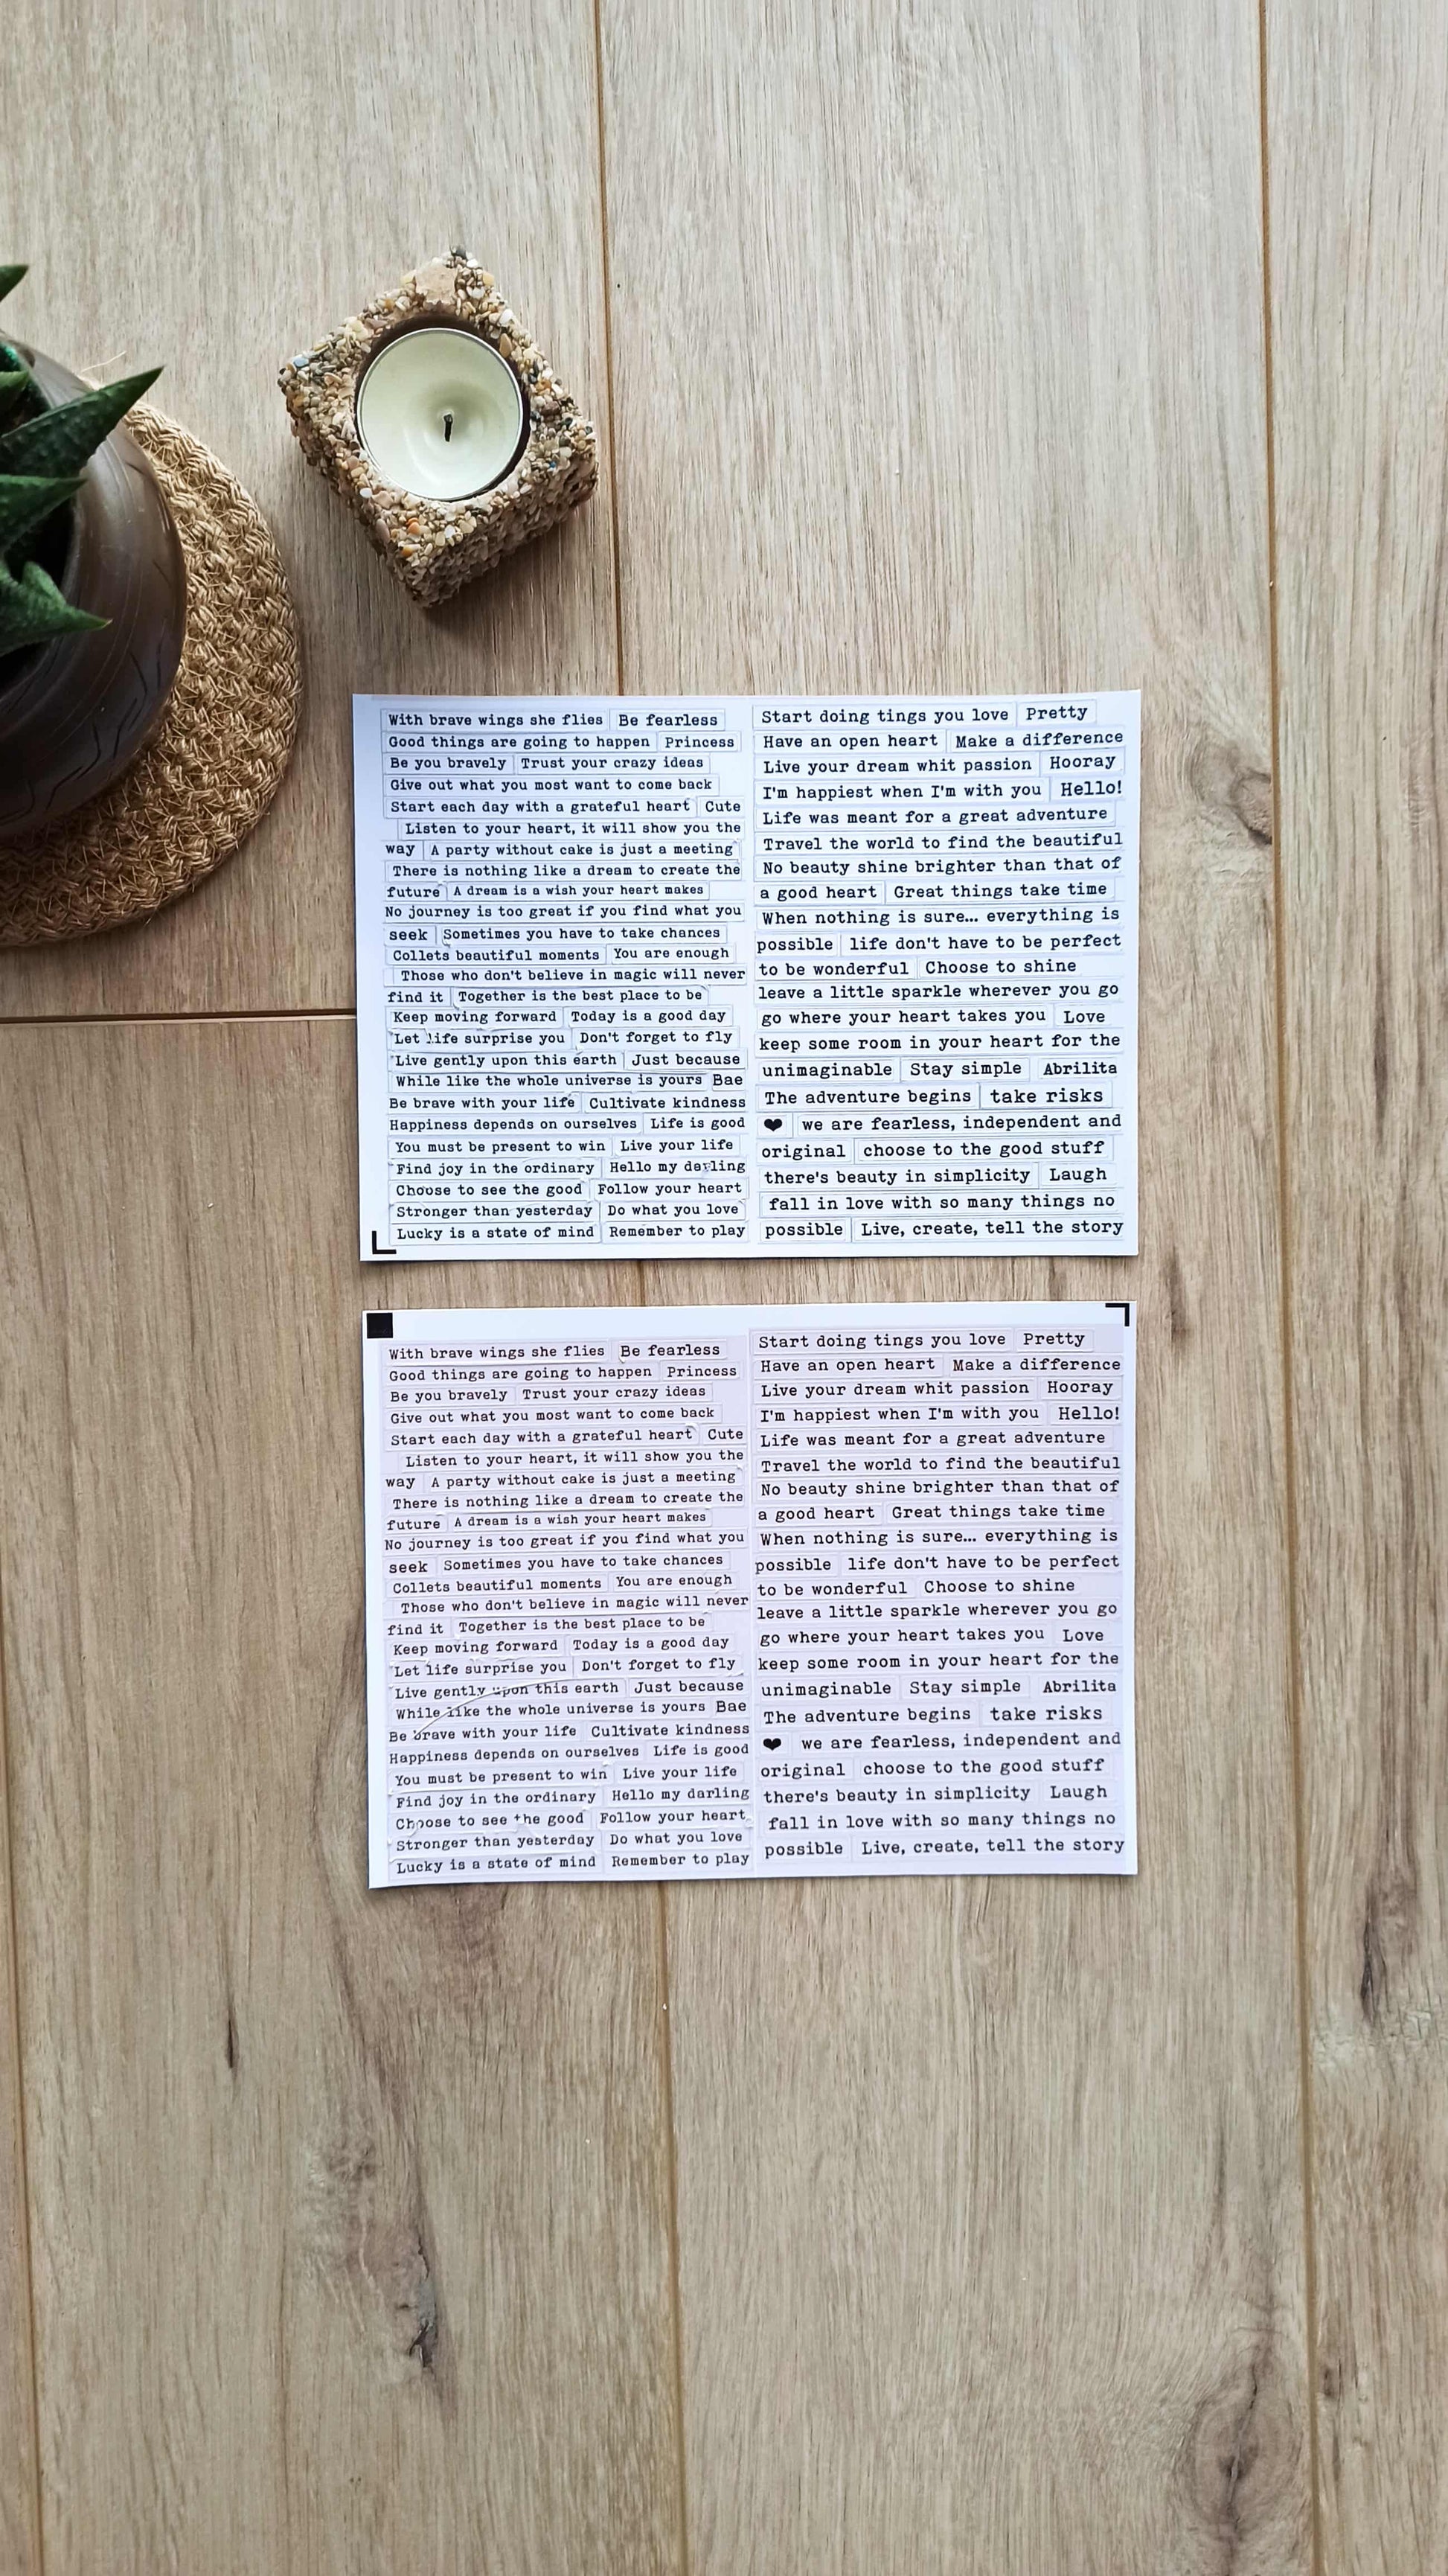 With brave wings she flies Be fearless
Good things are going to happen Princess
Be you bravely Trust your crazy ideas
Give out what you most want to come back
Start each day with a grateful heart Cute
Listen to your heart, it will show you the
way A party without cake is just a meeting
There is nothing like a dream to create the
future A dream is a wish your heart makes
No journey is too great if you find what you
seek Sometimes you have to take chances
Collets beautiful moments You are enough
Those who don't believe in magic will never
find it Together is the best place to be
Keep moving forward Today is a good day
Let life surprise you Don't forget to fly
Live gently upon this earth Just because
While like the whole universe is yours Bae
Be brave with your life Cultivate kindness
Happiness depends on ourselves Life is good
You must be present to win Live your life
Find joy in the ordinary Hello my darling
Choose to see the good Follow your heart
Stronger than yesterday Do what you love
Lucky is a state of mind Remember to play
Start doing tings you love Pretty
Have an open heart Make a difference
Live your dream whit passion Hooray
I'm happiest when I'm with you Hello!
Life was meant for a great adventure
Travel the world to find the beautiful
No beauty shine brighter than that of
a good heart Great things take time
When nothing is sure... everything is
possible life don't have to be perfect
to be wonderful Choose to shine
leave a little sparkle wherever you go
go where your heart takes you Love
keep some room in your heart for the
unimaginable Stay simple Abrilita
The adventure begins take risks
❤ we are fearless, independent and
original choose to the good stuff
there's beauty in simplicity Laugh
fall in love with so many things no
possible Live, create, tell the story
With brave wings she flies Be fearless
Good things are going to happen Princess
Be you bravely Trust your crazy ideas
Give out what you most want to come back
Start each day with a grateful heart Cute
Listen to your heart, it will show you the
way A party without cake is just a meeting
There is nothing like a dream to create the
future A dream is a wish your heart makes
No journey is too great if you find what you
seek Sometimes you have to take chances
Collets beautiful moments You are enough
Those who don't believe in magic will never
find it Together is the best place to be
Keep moving forward Today is a good day
Let life surprise you Don't forget to fly
Live gently upon this earth Just because
While like the whole universe is yours Bae
Be brave with your life Cultivate kindness
Happiness depends on ourselves Life is good
You must be present to win Live your life
Find joy in the ordinary Hello my darling
Choose to see the good Follow your heart
Stronger than yesterday Do what you love
Lucky is a state of mind Remember to play
Start doing tings you love Pretty
Have an open heart Make a difference
Live your dream whit passion Hooray
I'm happiest when I'm with you Hello!
Life was meant for a great adventure
Travel the world to find the beautiful
No beauty shine brighter than that of
a good heart Great things take time
When nothing is sure... everything is
possible life don't have to be perfect
to be wonderful Choose to shine
leave a little sparkle wherever you go
go where your heart takes you Love
keep some room in your heart for the
unimaginable Stay simple Abrilita
The adventure begins take risks
❤ we are fearless, independent and
original choose to the good stuff
there's beauty in simplicity Laugh
fall in love with so many things no
possible Live, create, tell the story